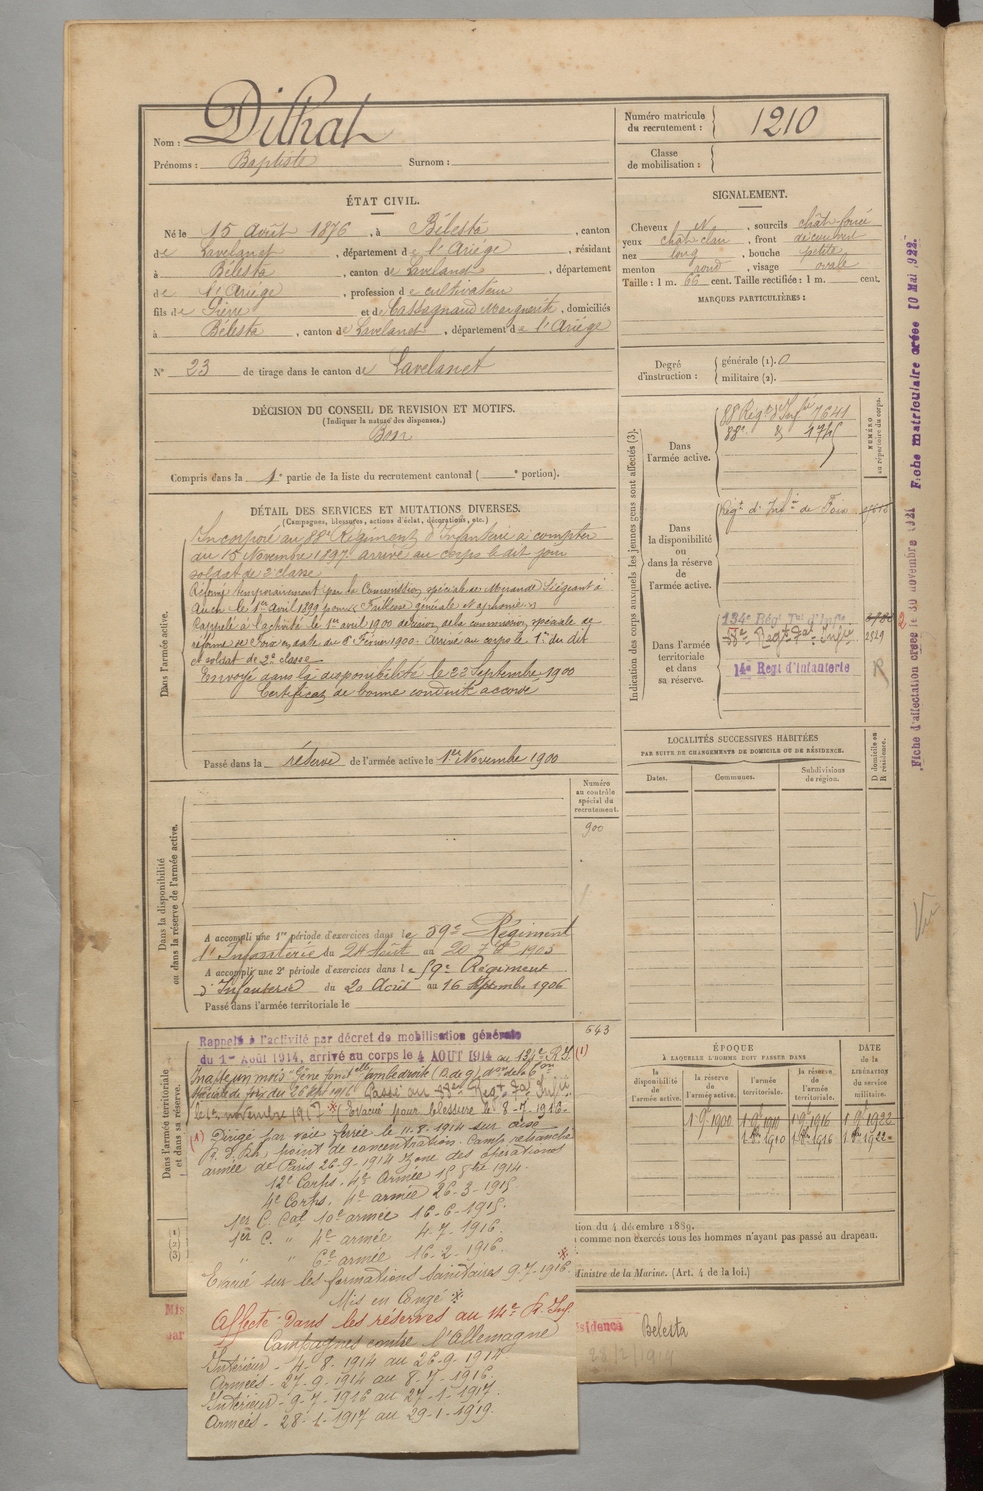 Nom : Dilhat
Prénoms : Baptiste Surnom :
Numéro matricule du recrutement : 1210
Classe de mobilisation :
ÉTAT CIVIL.
Né le 15 Août 1876, à Bélesta, canton
de Lavelanet, département de l'Ariège, résidant
à Bélesta, canton de Lavelanet, département
de l'Ariège, profession de cultivateur
fils de Pierre et de Cassagnaud Marguerite, domiciliés
à Bélesta, canton de Lavelanet, département de l'Ariège
N° 23 de tirage dans le canton de Lavelanet
SIGNALEMENT.
Cheveux N, sourcils chât foncé
yeux chât clair, front découvert
nez long, bouche petite
menton rond, visage ovale
Taille : 1 m. 66 cent. Taille rectifiée : 1 m. cent.
MARQUES PARTICULIÈRES :
Degré d'instruction : générale (1). 0
militaire (2).
DÉCISION DU CONSEIL DE REVISION ET MOTIFS.
(Indiquer la nature des dispenses.)
Bon
Compris dans la 1e partie de la liste du recrutement cantonal ( e portion).
DÉTAIL DES SERVICES ET MUTATIONS DIVERSES.
(Campagnes, blessures, actions d'éclat, décorations, etc.)
Dans l'armée active.
Incorporé au 88e Régiment d'Infanterie à compter
du 15 Novembre 1897 arrivé au corps le dit jour
soldat de 2e classe
Réformé temporairement par la Commission spéciale de Mirande siégeant à
Auch le 1er Avril 1899 pour faiblesse générale et aphonie
Rappelé à l'activité le 1er avril 1900 décision de la commission spéciale de
réforme de Foix en date du 8 Février 1900. Arrivé au corps le 1er du dit
et soldat de 2e classe
Envoyé dans la disponibilité le 22 Septembre 1900
Certificat de bonne conduite accordé
Passé dans la réserve de l'armée active le 1er Novembre 1900
Indication des corps auxquels les jeunes gens sont affectés (3).
NUMÉRO au répertoire du corps.
Dans l'armée active.
88 Régt d'Infie 7641
88e d° 4745
Dans la disponibilité ou dans la réserve de l'armée active.
Régt d'Infie de Foix
Dans l'armée territoriale et dans sa réserve.
134e Régt Tal d'Infie
58e Régt Tal Infie 2329
14e Regt d'Infanterie
Fiche d'affectation créée le 30 novembre 1921 Fiche matriculaire créée 10 Mai 1922.
LOCALITÉS SUCCESSIVES HABITÉES
PAR SUITE DE CHANGEMENTS DE DOMICILE OU DE RÉSIDENCE.
Dates. Communes. Subdivisions de région. D domicile ou R résidence.
Dans la disponibilité ou dans la réserve de l'armée active.
Numéro au contrôle spécial du recrutement.
900
A accompli une 1re période d'exercices dans le 59e Régiment
d'Infanterie du 24 Août au 20 7bre 1903
A accompli une 2e période d'exercices dans le 59e Régiment
d'Infanterie du 20 Août au 16 Septembre 1906
Passé dans l'armée territoriale le
Vu
643
Dans l'armée territoriale et dans sa réserve.
Rappelé à l'activité par décret de mobilisation générale
du 1er Août 1914, arrivé au corps le 4 AOUT 1914 au 134e R.I. (1)
Inapte un mois
spéciale de Foix du 26 1916 Passé au 58e Régt Tal Infie
le 1er novembre 1917 (Evacué pour blessure le 8-7-1916-
(1) Dirigé par voie ferrée le 11-8-1914 sur
point de concentration. Camp retranché
armée de Paris 26-9-1914 zone des opérations
12e Corps, 4e Armée 15 8bre 1914.
4e Corps, 4e armée 26-3-1915
1er C. Cal 10e armée 16-6-1915.
1er C. " 4e armée 4-7-1916.
" " 6e armée 16-2-1916.
Evacué sur les formations sanitaires 9-7-1916.
Mis en Congé
Affecté dans les réserves au 14e R. Inf.
Campagnes contre l'Allemagne
Intérieur - 4-8-1914 au 26-9-1914
Armées - 27-9-1914 au 8-7-1916.
Intérieur - 9-7-1916 au 27-1-1917.
Armées - 28-1-1917 au 29-1-1919.
ÉPOQUE
À LAQUELLE L'HOMME DOIT PASSER DANS
la disponibilité de l'armée active. la réserve de l'armée active. l'armée territoriale. la réserve de l'armée territoriale.
DATE de la LIBÉRATION du service militaire.
1 9bre 1900 1 9bre 1910 1 9bre 1916 1 9bre 1922
1 8bre 1910 1 8bre 1916 1 8bre 1922
(1)
(2)
(3)
tion du 4 décembre 1889.
comme non exercés tous les hommes n'ayant pas passé au drapeau.
Ministre de la Marine. (Art. 4 de la loi.)
Mis
par
sidence Belesta
28/2/1919